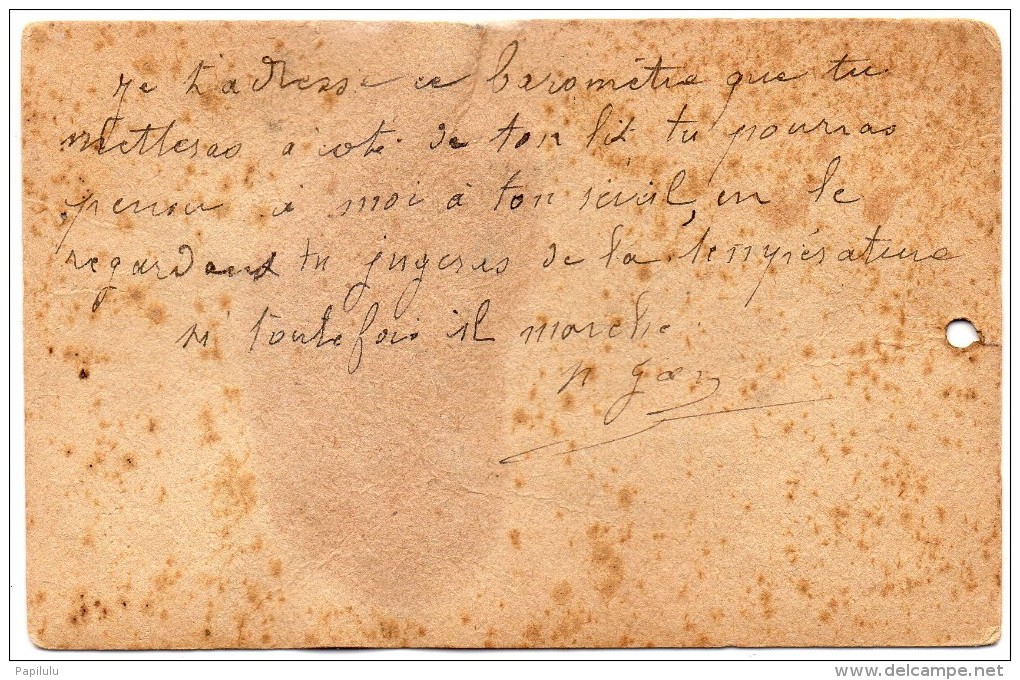 je t'adresse ce baromètre que tu
metteras à coté de ton lit tu pourras
penser à moi à ton réveil, en le
regardant tu jugeras de la température
si toutefois il marche
Papilulu
www.delcampe.net